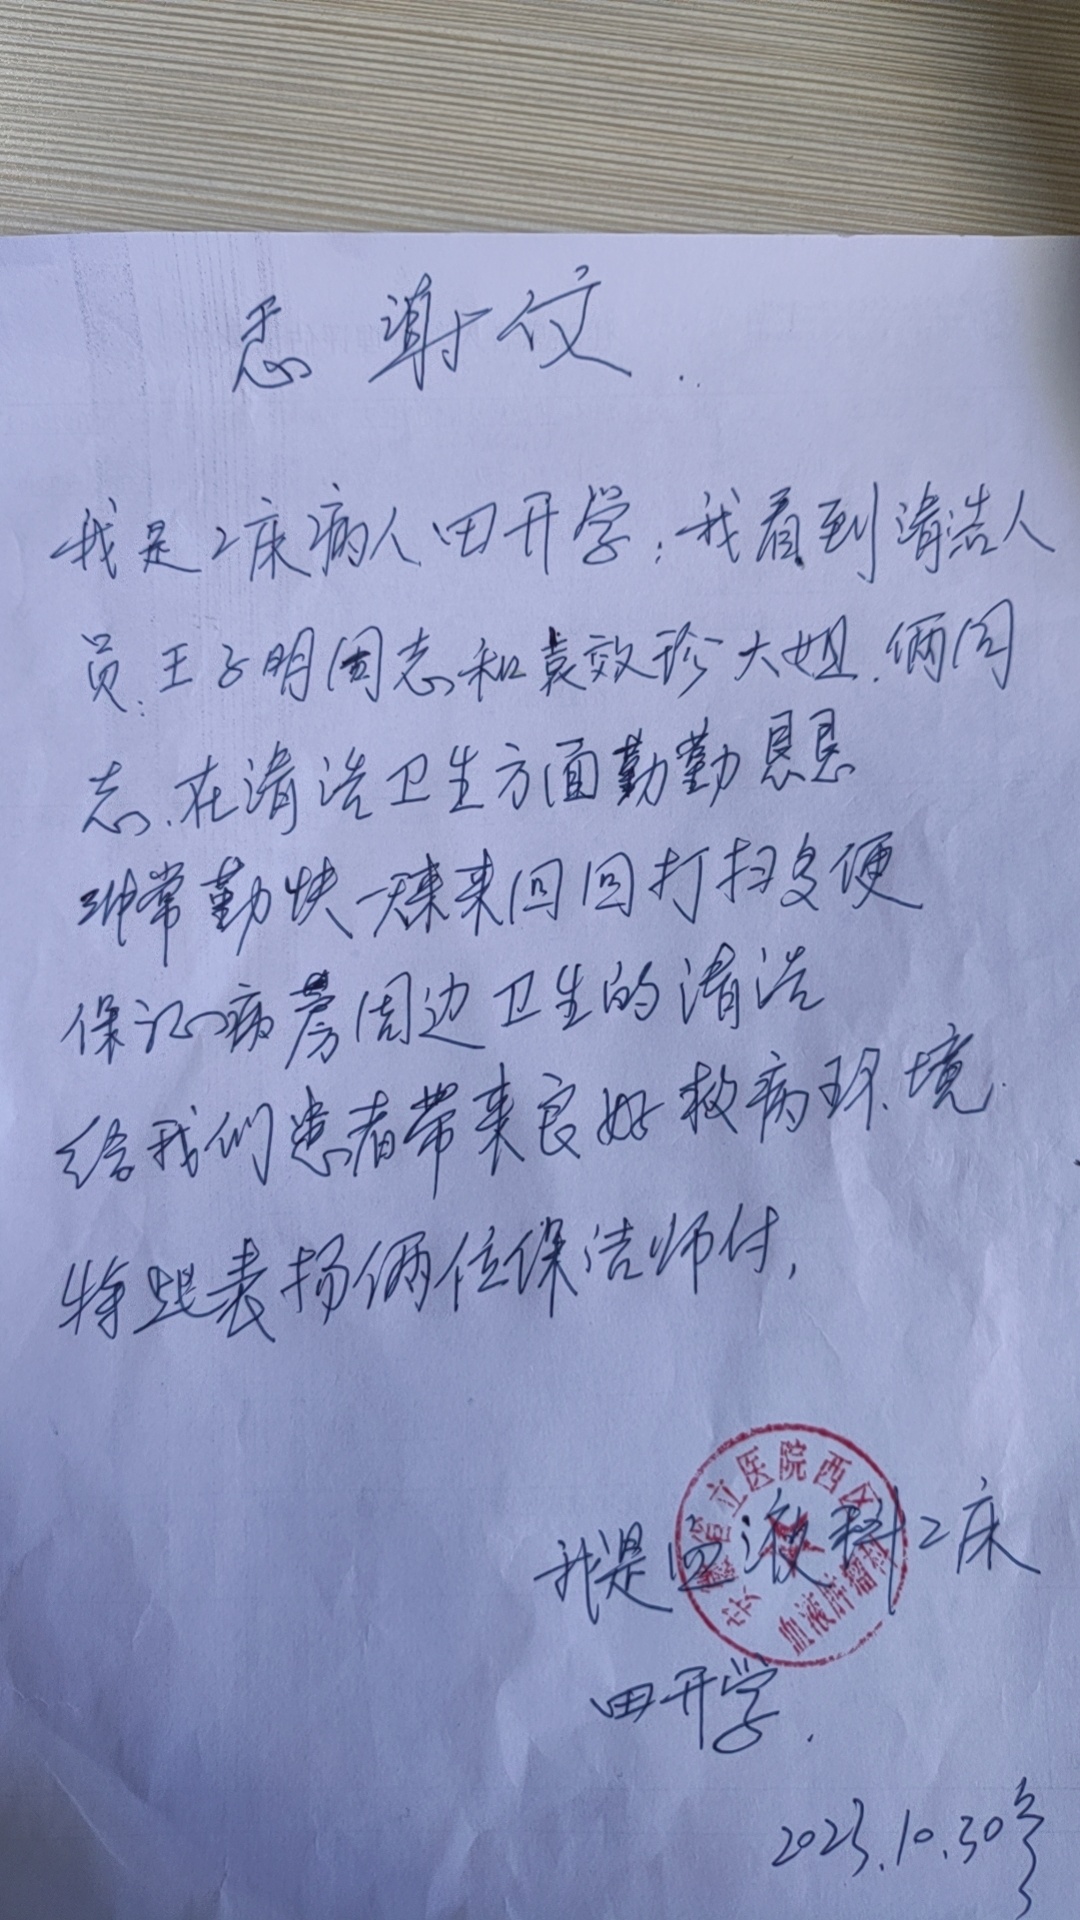 感谢信
我是2床病人田开学,我看到清洁人
员.王子明同志和袁效珍大姐.俩同
志.在清洁卫生方面勤勤恳恳
非常勤快一天来来回回打扫多便
保证病房周边卫生的清洁
给我们患者带来良好救病环境.
特此表扬俩位保洁师付,
安徽省立医院西区
血液肿瘤科
我是血液科2床
田开学.
2023.10.30号